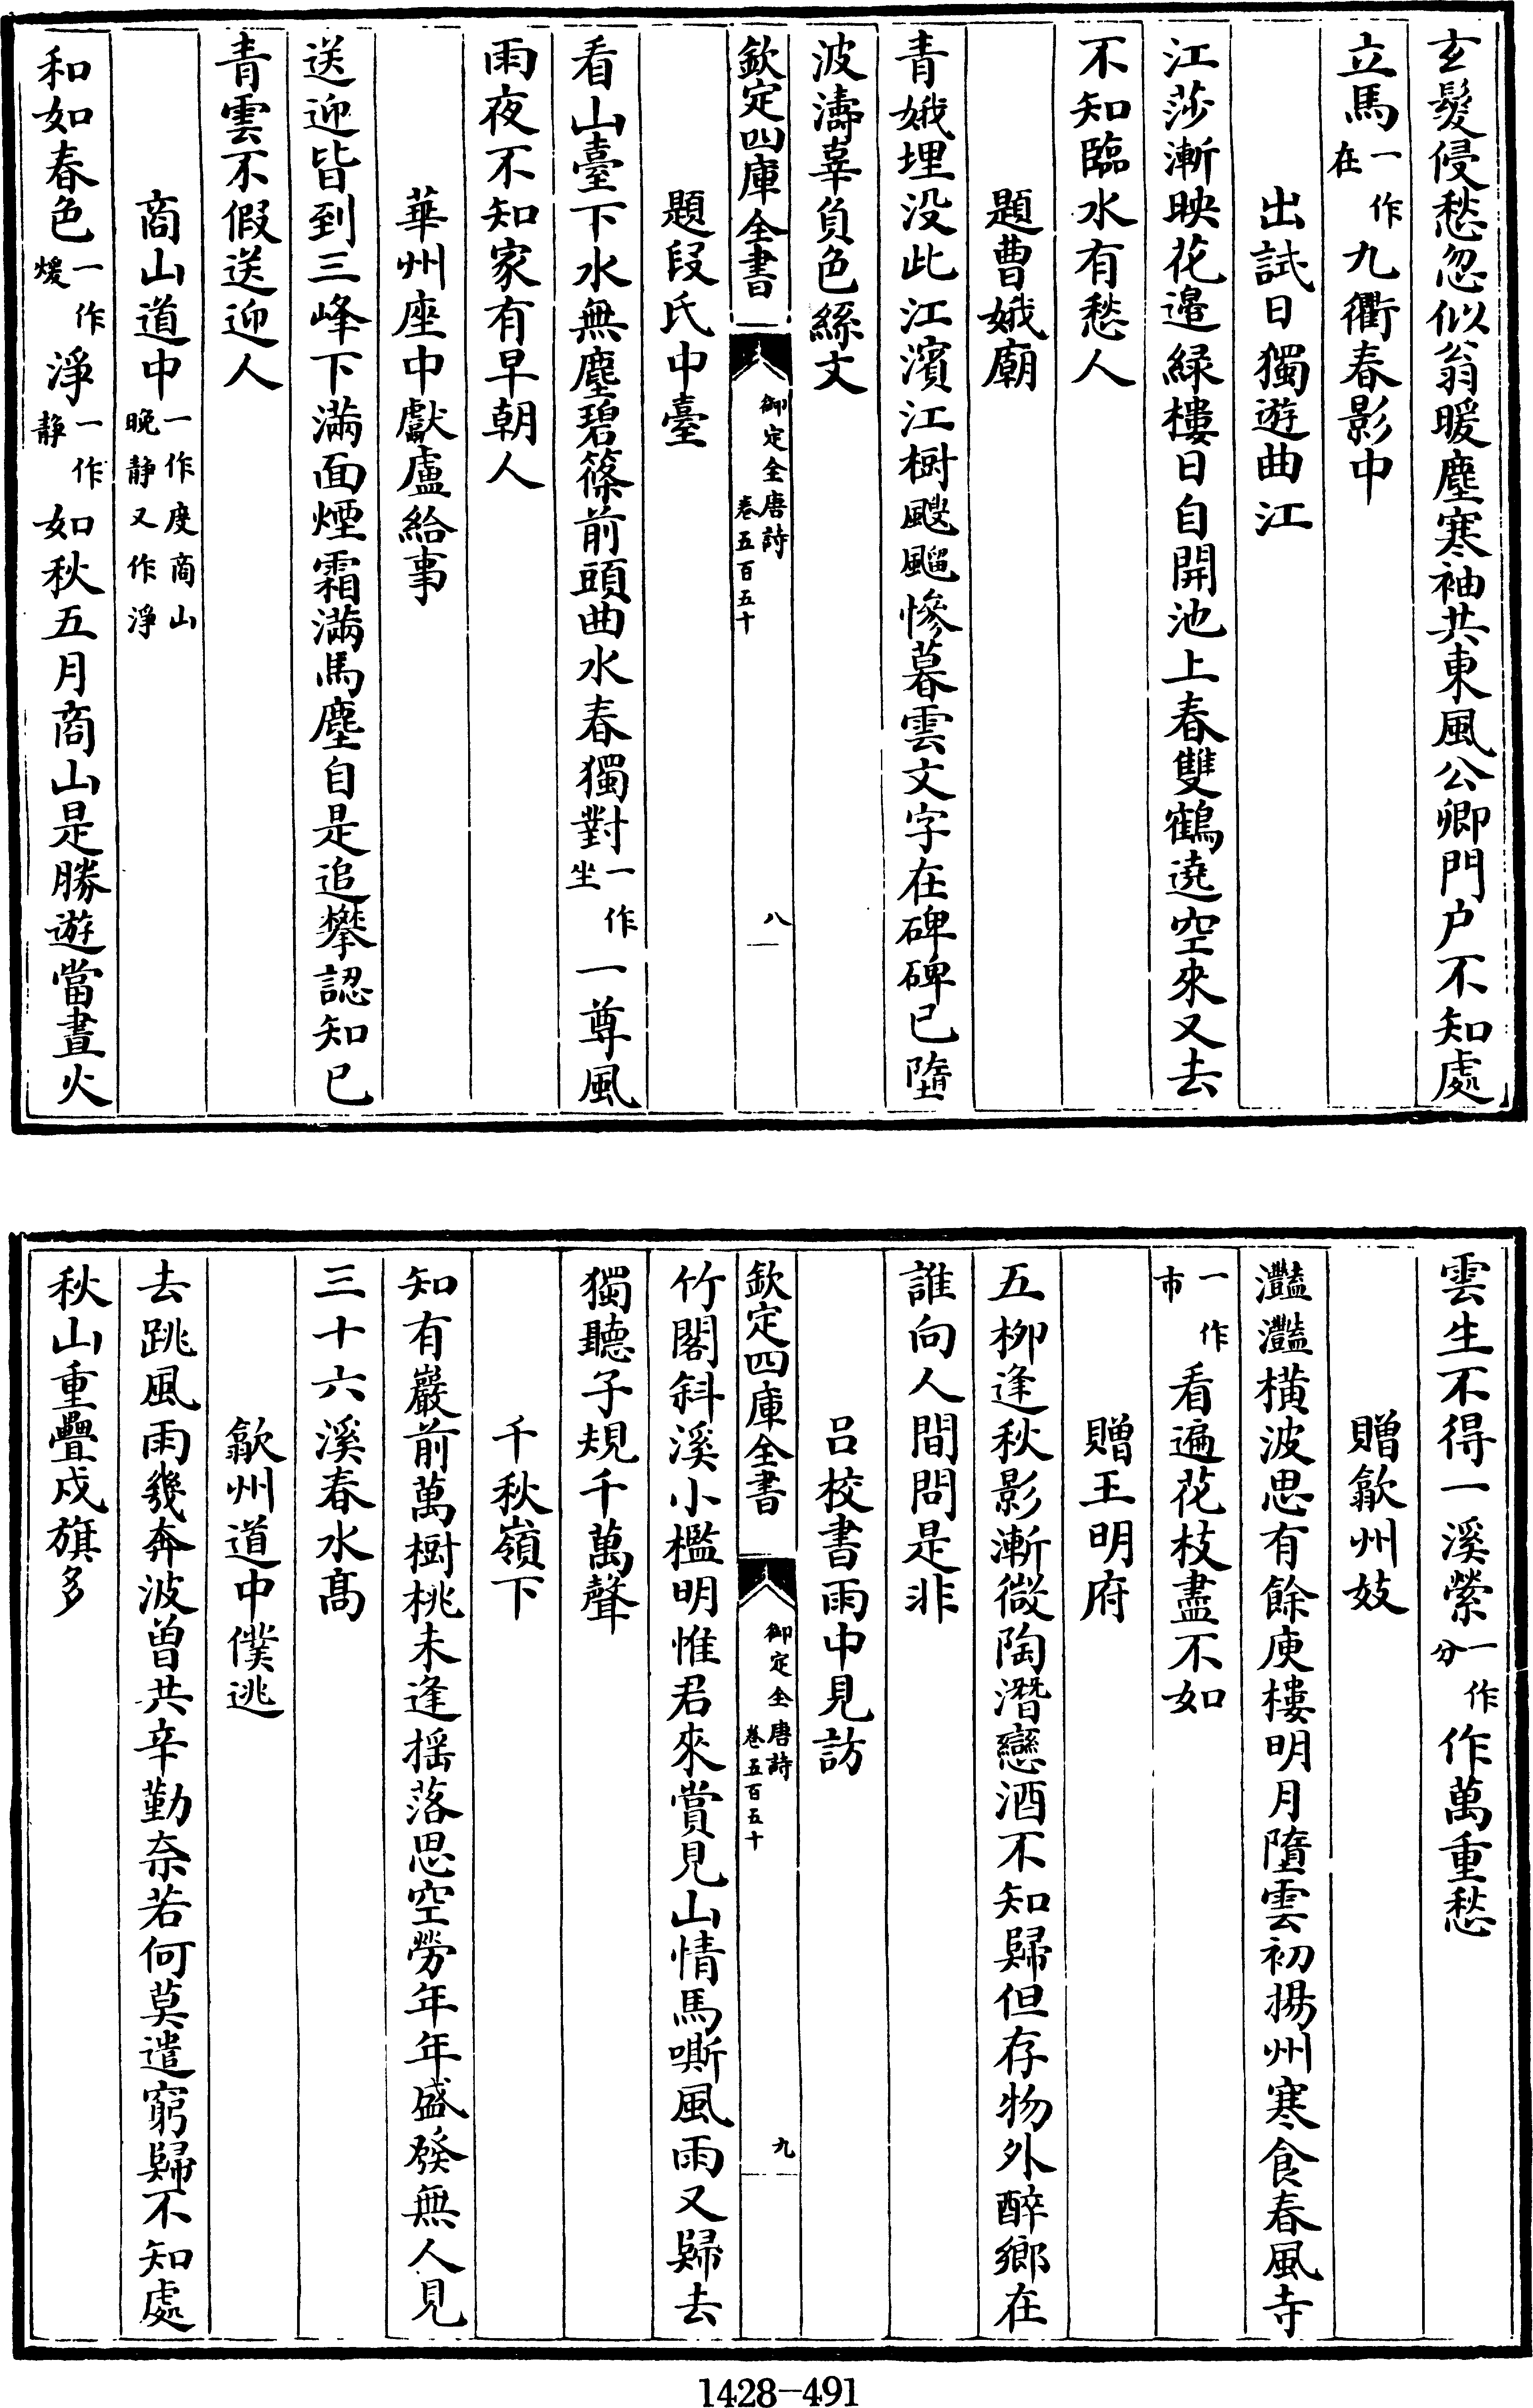 玄髮侵愁忽似翁暖塵寒袖共東風公卿門户不知處
立馬一作在九衢春影中
出試日獨遊曲江
江莎漸映花邉緑樓日自開池上春雙鶴遶空來又去
不知臨水有愁人
題曹娥廟
青娥埋没此江濱江樹颼飀慘暮雲文字在碑碑已墮
波濤辜負色絲文
欽定四庫全書
御定全唐詩
卷五百五十
八
題段氏中臺
看山臺下水無塵碧篠前頭曲水春獨對一作坐一尊風
雨夜不知家有早朝人
華州座中獻盧給事
送迎皆到三峰下滿面煙霜滿馬塵自是追攀認知已
青雲不假送迎人
商山道中一作度商山晚静又作淨
和如春色一作煖淨一作静如秋五月商山是勝遊當晝火
雲生不得一溪縈一作分作萬重愁
贈歙州妓
灩灩橫波思有餘庾樓明月墮雲初揚州寒食春風寺
一作市看遍花枝盡不如
贈王明府
五栁逢秋影漸微陶潛戀酒不知歸但存物外醉鄉在
誰向人間問是非
吕校書雨中見訪
欽定四庫全書
御定全唐詩
卷五百五十
九
竹閣斜溪小檻明惟君來賞見山情馬嘶風雨又歸去
獨聽子規千萬聲
千秋嶺下
知有巖前萬樹桃未逢揺落思空勞年年盛發無人見
三十六溪春水髙
歙州道中僕逃
去跳風雨幾奔波曾共辛勤奈若何莫遣窮歸不知處
秋山重疊戍旗多
1428-491